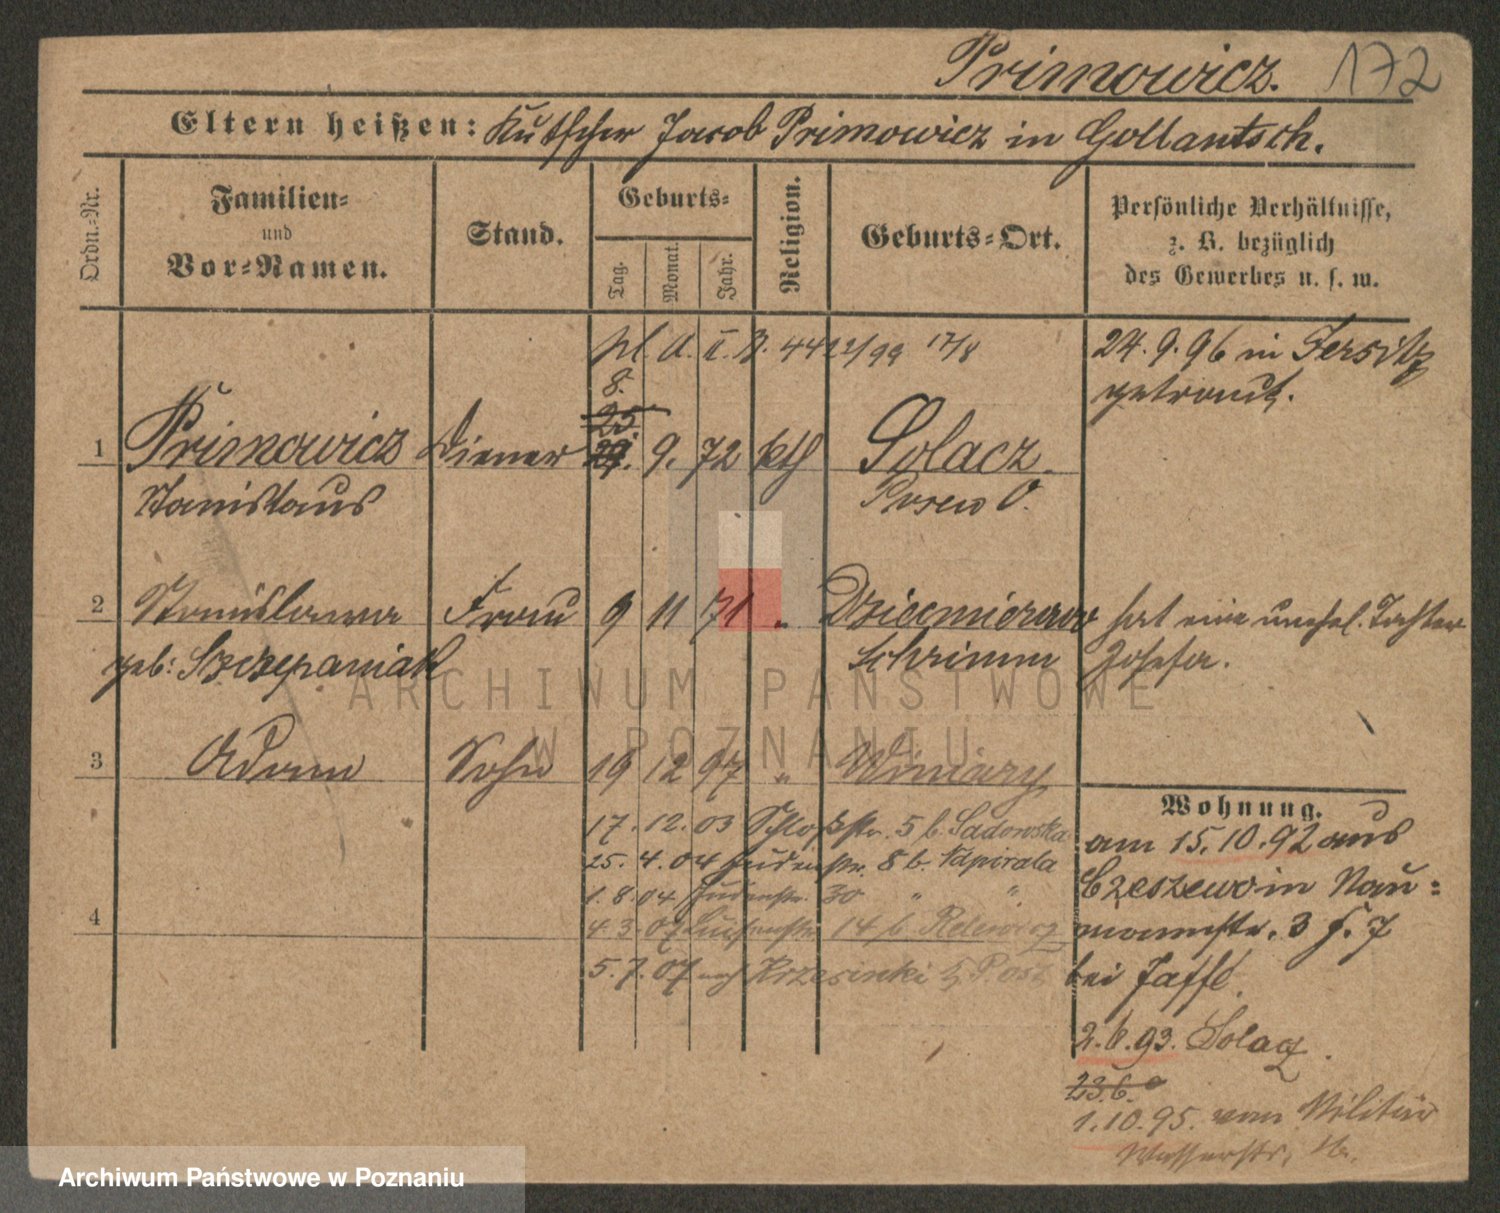 Primowicz. 172
Eltern heißen: Kutscher Jacob Primowicz in Gollantsch.
Ordn.-Nr.
Familien-
und
Vor-Namen.
Stand.
Geburts-
Tag.
Monat.
Jahr.
Religion.
Geburts-Ort.
Persönliche Verhältnisse,
z. B. bezüglich
des Gewerbes u. s. w.
A. II. B. 4422/99 17/8
24.9.96 in Jersitz
getraut.
8.
25.
1 Primowicz Diener 9. 72 kth Solacz
Stanislaus Posen O.
2 Stanislawa Frau 9 11 71 " Dziecmierowo hat eine unehel. Tochter
geb: Szczepaniak Schrimm Josefa.
3 Adam Sohn 19 12 97 " Winiary
Wohnung.
17. 12. 03 Schloßstr. 5 b. Sadowska
25. 4. 04 Judenstr. 8 b. Napirala
1. 8. 04 Judenstr. 30 " "
4
4. 3. 07 14 b.
5. 7. 07 nach Krzesinki
am 15.10.92 aus
Czeszewo in Nau=
mannstr. 3 H. I
bei Jaffé.
2.6.93. Solacz.
23.6.
1.10.95. vom Militär
Wasserstr.
ARCHIWUM PAŃSTWOWE
W POZNANIU
Archiwum Państwowe w Poznaniu